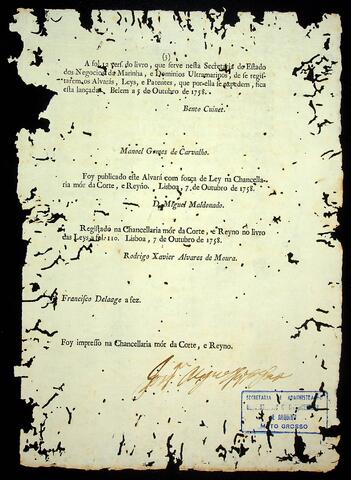 (3)
A fol. 12 vers. do livro, que serve nesta Secretaria de Estado
dos Negocios da Marinha, e Dominios Ultramarinos, de se regis-
tarem os Alvarás, Leys, e Patentes, que por ella se expedem, fica
esta lançada. Belem a 5 de Outubro de 1758.
Bento Cuinet.
Manoel Gomes de Carvalho.
Foy publicado este Alvará com força de Ley na Chancella-
ria mór da Corte, e Reyno. Lisboa, 7 de Outubro de 1758.
D. Miguel Maldonado.
Registado na Chancellaria mór da Corte, e Reyno no livro
das Leys a fol. 110. Lisboa, 7 de Outubro de 1758.
Rodrigo Xavier Alvares de Moura.
Francisco Delaage a fez.
Foy impresso na Chancellaria mór da Corte, e Reyno.
SECRETARIA DE ADMINISTRAÇ
MATO GROSSO